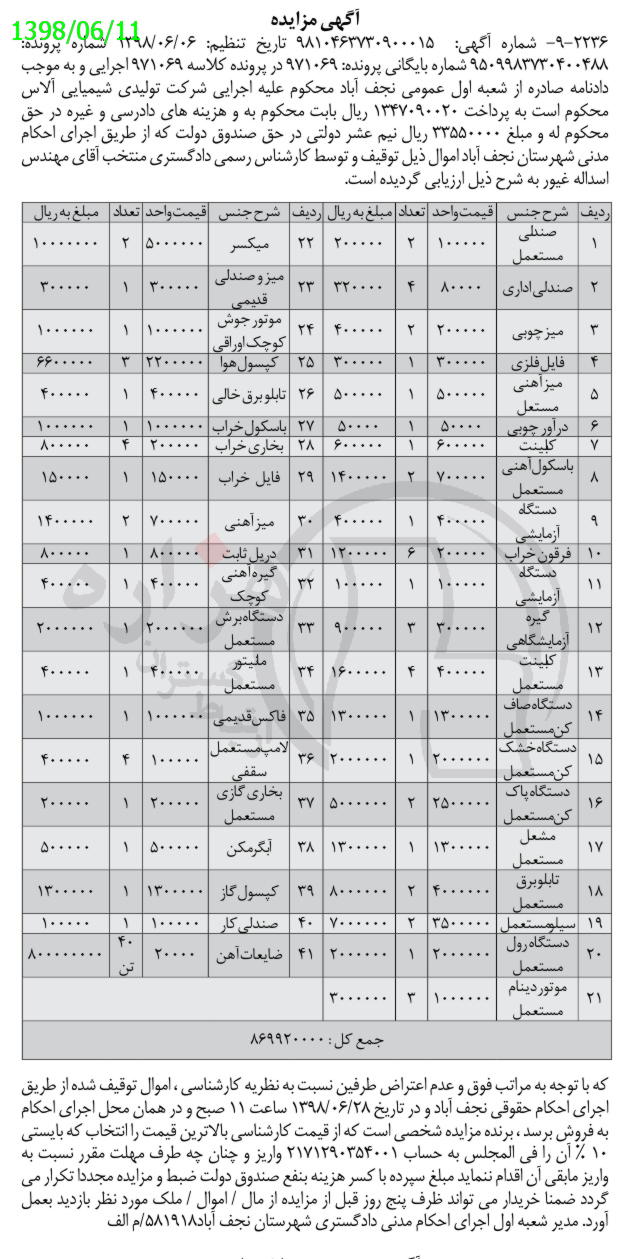 1398/06/11
آگهی مزایده
۹-۲۲۳۶- شماره آگهی: ۹۸۱۰۴۶۳۷۳۰۹۰۰۰۱۵ تاریخ تنظیم: ۱۳۹۸/۰۶/۰۶ شماره پرونده:
۹۵۰۹۹۸۳۷۳۰۴۰۰۴۸۸ شماره بایگانی پرونده: ۹۷۱۰۶۹ در پرونده کلاسه ۹۷۱۰۶۹ اجرایی و به موجب
دادنامه صادره از شعبه اول عمومی نجف آباد محکوم علیه اجرایی شرکت تولیدی شیمیایی آلاس
محکوم است به پرداخت ۱۳۴۷۰۹۰۰۲۰ ریال بابت محکوم به و هزینه های دادرسی و غیره در حق
محکوم له و مبلغ ۳۳۵۵۰۰۰۰ ریال نیم عشر دولتی در حق صندوق دولت که از طریق اجرای احکام
مدنی شهرستان نجف آباد اموال ذیل توقیف و توسط کارشناس رسمی دادگستری منتخب آقای مهندس
اسداله غیور به شرح ذیل ارزیابی گردیده است.
ردیف شرح جنس قیمت واحد تعداد مبلغ به ریال ردیف شرح جنس قیمت واحد تعداد مبلغ به ریال
۱ صندلی مستعمل ۱۰۰۰۰۰ ۲ ۲۰۰۰۰۰ ۲۲ میکسر ۵۰۰۰۰۰۰ ۲ ۱۰۰۰۰۰۰۰
۲ صندلی اداری ۸۰۰۰۰ ۴ ۳۲۰۰۰۰ ۲۳ میز و صندلی قدیمی ۳۰۰۰۰۰ ۱ ۳۰۰۰۰۰
۳ میز چوبی ۲۰۰۰۰۰ ۲ ۴۰۰۰۰۰ ۲۴ موتور جوش کوچک اوراقی ۱۰۰۰۰۰۰ ۱ ۱۰۰۰۰۰۰
۴ فایل فلزی ۳۰۰۰۰۰ ۱ ۳۰۰۰۰۰ ۲۵ کپسول هوا ۲۲۰۰۰۰۰ ۳ ۶۶۰۰۰۰۰
۵ میز آهنی مستعل ۵۰۰۰۰۰ ۱ ۵۰۰۰۰۰ ۲۶ تابلو برق خالی ۴۰۰۰۰۰ ۱ ۴۰۰۰۰۰
۶ درآور چوبی ۵۰۰۰۰ ۱ ۵۰۰۰۰ ۲۷ باسکول خراب ۱۰۰۰۰۰۰ ۱ ۱۰۰۰۰۰۰
۷ کابینت ۶۰۰۰۰۰ ۱ ۶۰۰۰۰۰ ۲۸ بخاری خراب ۲۰۰۰۰۰ ۴ ۸۰۰۰۰۰
۸ باسکول آهنی مستعمل ۷۰۰۰۰۰ ۲ ۱۴۰۰۰۰۰ ۲۹ فایل خراب ۱۵۰۰۰۰ ۱ ۱۵۰۰۰۰
۹ دستگاه آزمایشی ۴۰۰۰۰۰ ۱ ۴۰۰۰۰۰ ۳۰ میز آهنی ۷۰۰۰۰۰ ۲ ۱۴۰۰۰۰۰
۱۰ فرقون خراب ۲۰۰۰۰۰ ۶ ۱۲۰۰۰۰۰ ۳۱ دریل ثابت ۸۰۰۰۰۰ ۱ ۸۰۰۰۰۰
۱۱ دستگاه آزمایشی ۱۰۰۰۰۰ ۱ ۱۰۰۰۰۰ ۳۲ گیره آهنی کوچک ۴۰۰۰۰۰ ۱ ۴۰۰۰۰۰
۱۲ گیره آزمایشگاهی ۳۰۰۰۰۰ ۳ ۹۰۰۰۰۰ ۳۳ دستگاه برش مستعمل ۲۰۰۰۰۰۰ ۱ ۲۰۰۰۰۰۰
۱۳ کابینت مستعمل ۴۰۰۰۰۰ ۴ ۱۶۰۰۰۰۰ ۳۴ مانیتور مستعمل ۴۰۰۰۰۰ ۱ ۴۰۰۰۰۰
۱۴ دستگاه صاف کن مستعمل ۱۳۰۰۰۰۰ ۱ ۱۳۰۰۰۰۰ ۳۵ فاکس قدیمی ۱۰۰۰۰۰۰ ۱ ۱۰۰۰۰۰۰
۱۵ دستگاه خشک کن مستعمل ۲۰۰۰۰۰۰ ۱ ۲۰۰۰۰۰۰ ۳۶ لامپ مستعمل سقفی ۱۰۰۰۰۰ ۴ ۴۰۰۰۰۰
۱۶ دستگاه پاک کن مستعمل ۲۵۰۰۰۰۰ ۲ ۵۰۰۰۰۰۰ ۳۷ بخاری گازی مستعمل ۲۰۰۰۰۰ ۱ ۲۰۰۰۰۰
۱۷ مشعل مستعمل ۱۳۰۰۰۰۰ ۱ ۱۳۰۰۰۰۰ ۳۸ آبگرمکن ۵۰۰۰۰۰ ۱ ۵۰۰۰۰۰
۱۸ تابلو برق مستعمل ۴۰۰۰۰۰۰ ۲ ۸۰۰۰۰۰۰ ۳۹ کپسول گاز ۱۳۰۰۰۰۰ ۱ ۱۳۰۰۰۰۰
۱۹ سیلو مستعمل ۳۵۰۰۰۰۰ ۲ ۷۰۰۰۰۰۰ ۴۰ صندلی کار ۱۰۰۰۰۰ ۱ ۱۰۰۰۰۰
۲۰ دستگاه رول مستعمل ۲۰۰۰۰۰۰ ۱ ۲۰۰۰۰۰۰ ۴۱ ضایعات آهن ۲۰۰۰۰ ۴۰ تن ۸۰۰۰۰۰۰۰۰
۲۱ موتور دینام مستعمل ۱۰۰۰۰۰۰ ۳ ۳۰۰۰۰۰۰
جمع کل: ۸۶۹۹۲۰۰۰۰
که با توجه به مراتب فوق و عدم اعتراض طرفین نسبت به نظریه کارشناسی ، اموال توقیف شده از طریق
اجرای احکام حقوقی نجف آباد و در تاریخ ۱۳۹۸/۰۶/۲۸ ساعت ۱۱ صبح و در همان محل اجرای احکام
به فروش برسد ، برنده مزایده شخصی است که از قیمت کارشناسی بالاترین قیمت را انتخاب که بایستی
۱۰ ٪ آن را فی المجلس به حساب ۲۱۷۱۲۹۰۳۵۴۰۰۱ واریز و چنان چه طرف مهلت مقرر نسبت به
واریز مابقی آن اقدام ننماید مبلغ سپرده با کسر هزینه بنفع صندوق دولت ضبط و مزایده مجددا تکرار می
گردد ضمنا خریدار می تواند ظرف پنج روز قبل از مزایده از مال / اموال / ملک مورد نظر بازدید بعمل
آورد. مدیر شعبه اول اجرای احکام مدنی دادگستری شهرستان نجف آباد۵۸۱۹۱۸/م الف